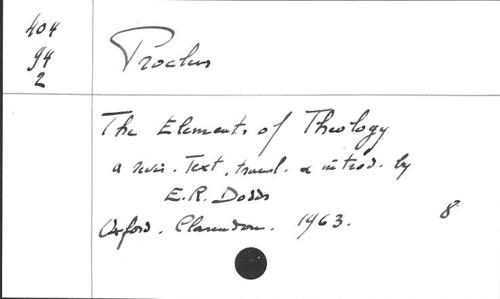 404
94
2
Proclus
The Elements of Theology
a revis. Text, transl. & introd. by
E.R. Dodds
Oxford. Clarendon. 1963. 8